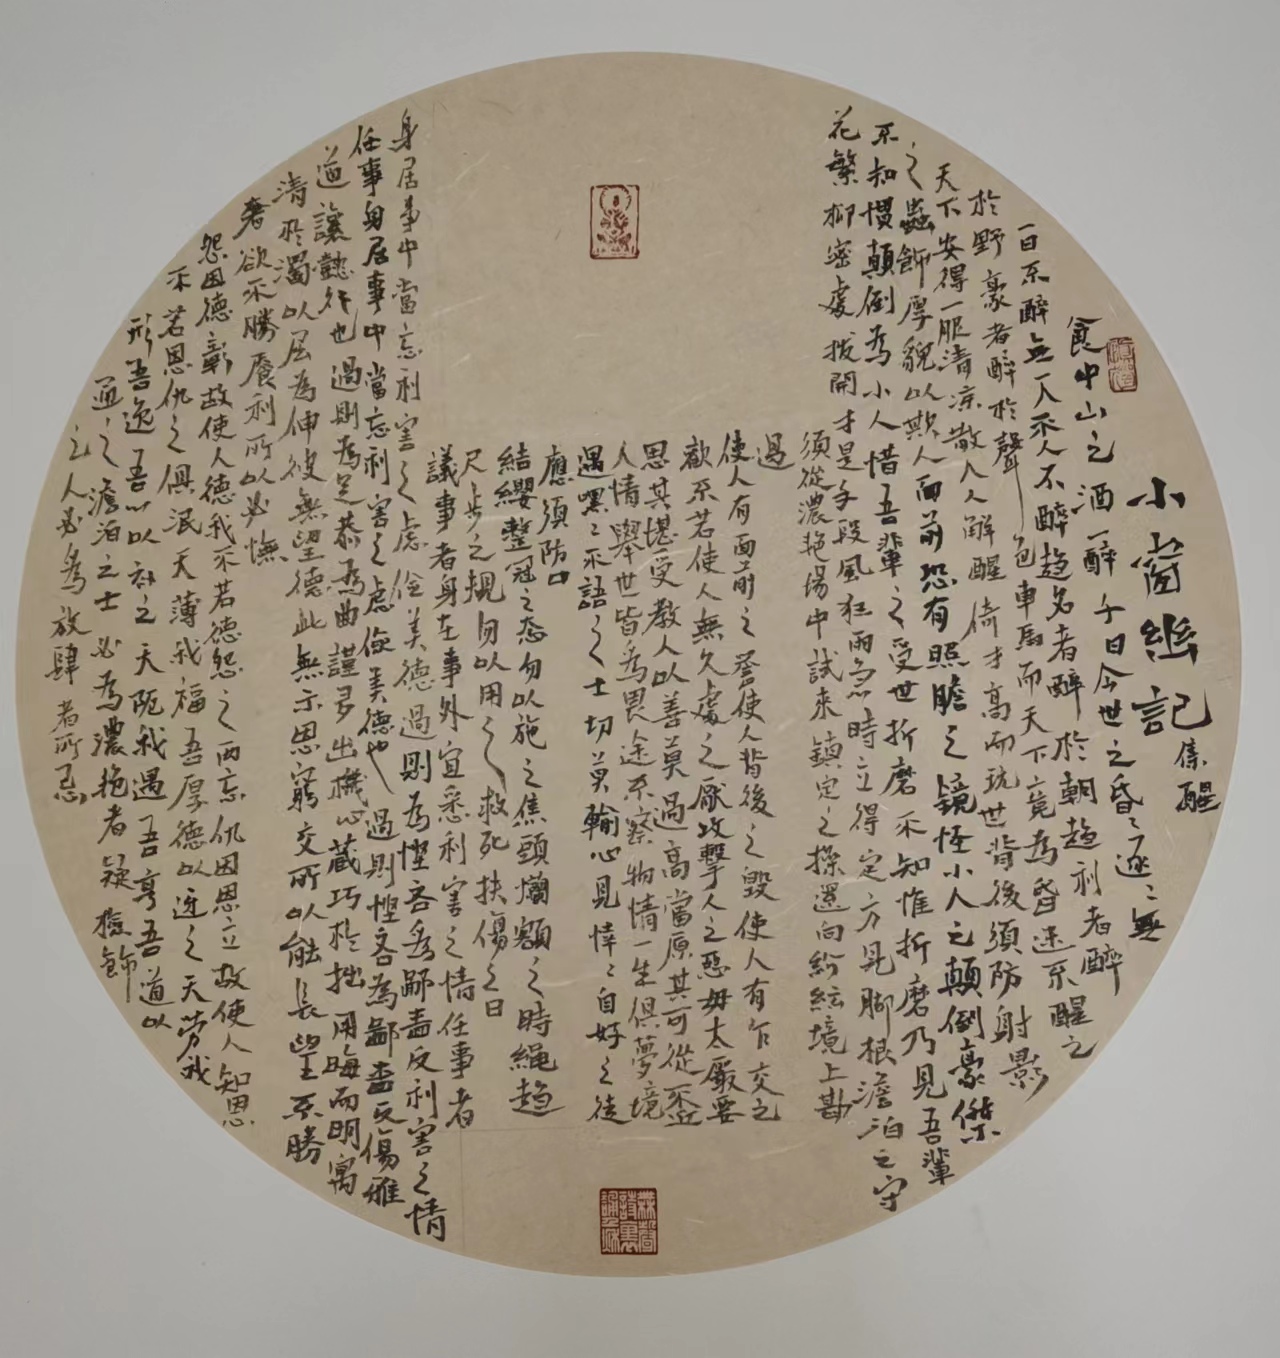 小窗幽記
集醒
食中山之酒一醉千日今世之昏昏逐逐無
一日不醉無一人不人不醉趨名者醉於朝趨利者醉
於野豪者醉於聲色車馬而天下竟為昏迷不醒之
天下安得一服清凉散人人解醒倚才高而玩世背後須防射影
之蟲飾厚貌以欺人面前恐有照膽之鏡怪小人之顛倒豪傑
不知慣顛倒為小人惜吾輩之受世折磨不知惟折磨乃見吾輩
花繁柳密處拨開才是手段風狂雨急時立得定方見脚根澹泊之守
須從濃艳場中試來鎮定之操還向紛紜境上勘
過
使人有面前之譽使人背後之毀使人有乍交之
歡不若使人無久處之厭攻擊人之惡毋太嚴要
思其堪受教人以善莫過高當原其可從
人情舉世皆為畏途不察物情一生俱夢境
遇嘿嘿不語之士切莫輸心見悻悻自好之徒
應須防口
結纓整冠之态勿以施之焦頭爛額之時繩趨
尺步之規勿以用之救死扶傷之日
議事者身在事外宜悉利害之情任事者
身居事中當忘利害之慮儉美德過則為慳吝為鄙嗇反利害之情
任事身居事中當忘利害之慮儉美德也過則慳吝為鄙嗇反傷雅
道讓懿行也過則為足恭為曲謹多出機心藏巧於拙用晦而明寓
清於濁以屈為伸彼無望德此無示恩窮交所以能長望不勝
奢欲不勝饜利所以必憮
怨因德彰故使人德我不若德怨之兩忘仇因恩立故使人知恩
不若恩仇之俱泯天薄我福吾厚德以迓之天勞我
形吾逸吾心以補之天阨我遇吾亨吾道以
通之澹泊之士必為濃艳者疑檢飭
之人必為放肆者所忌